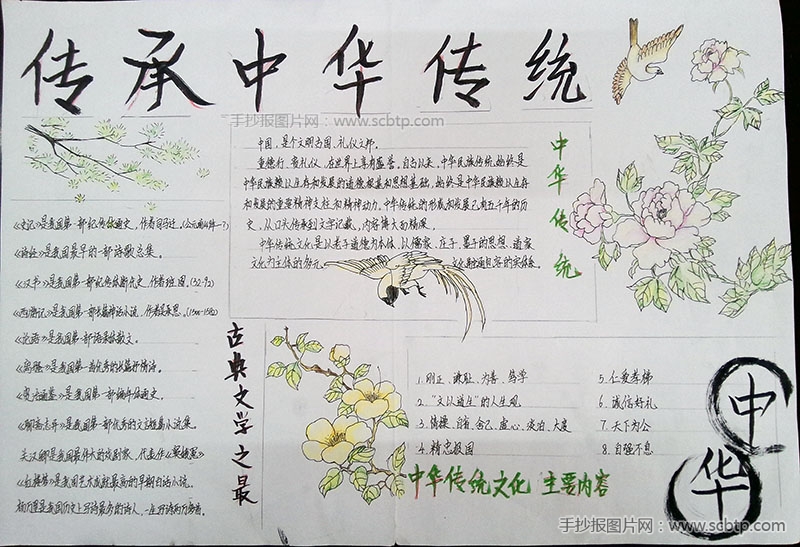 传承中华传统
手抄报图片网：www.scbtp.com
中国，是个文明古国，礼仪之邦。
重德行，贵礼仪，在世界上享有盛誉。自古以来，中华民族传统，始终是
中华民族赖以生存和发展的道德根基和思想基础，始终是中华民族赖以生存
和发展的重要精神支柱和精神动力。中华传统的形成和发展已有五千年的历
史，从口头传承到文字记载，内容博大而精深。
中华传统文化是以老子道德为本体，以儒家、庄子、墨子的思想、道家
文化为主体的多元
中华传统
《史记》是我国第一部纪传体通史，作者司马迁。
《诗经》是我国最早的一部诗歌总集。
《汉书》是我国第一部纪传体断代史，作者班固。(32-92)
《西游记》是我国第一部长篇神话小说，作者吴承恩。(1500-1582)
《论语》是我国第一部语录体散文。
《离骚》是我国第一首优秀的长篇抒情诗。
《资治通鉴》是我国第一部编年体通史。
《聊斋志异》是我国第一部优秀的文言短篇小说集。
关汉卿是我国最伟大的戏剧家，代表作《窦娥冤》
是我国艺术成就最高的早期白话小说。
是我国历史上写诗最多的诗人，一生写诗两万多首。
古典文学之最
1. 刚正、廉耻、为善、笃学
2. "文以道生"的人生观
3. 情操、自省、舍己、虚心、淡泊、大度
4. 精忠报国
5. 仁爱孝悌
6. 诚信好礼
7. 天下为公
8. 自强不息
中华传统文化 主要内容
中华
手抄报图片网：www.scbtp.com